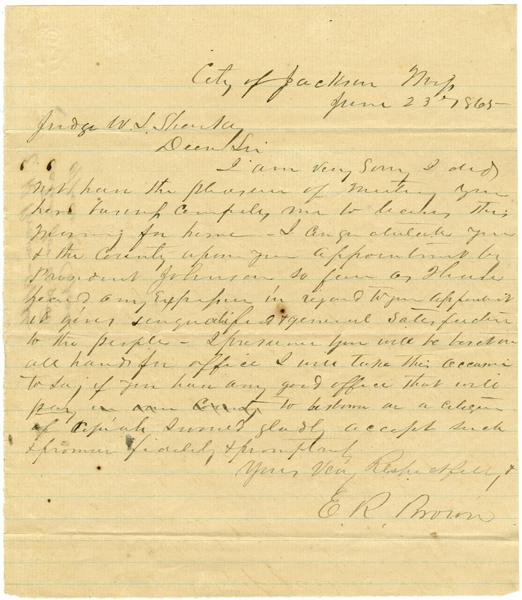 City of Jackson Miſs
June 23rd 1865
Judge W. L. Sharkey
Dear Sir
I am very sorry I did
not have the pleasure of meeting you
here business compels me to leave this
morning for home - I congratulate you
& the County upon your appointment by
President Johnson so far as I have
heard any expression in regard to your appointment
it gives unqualified & general satisfaction
to the people - I presume you will be beset on
all hands for office I will take this occasion
to say if you have any good office that will
pay in our County to bestow on a citizen
of Copiah I would gladly accept such
& promise fidelity & promptness
Yours Very Respectfully &
E. R. Brown